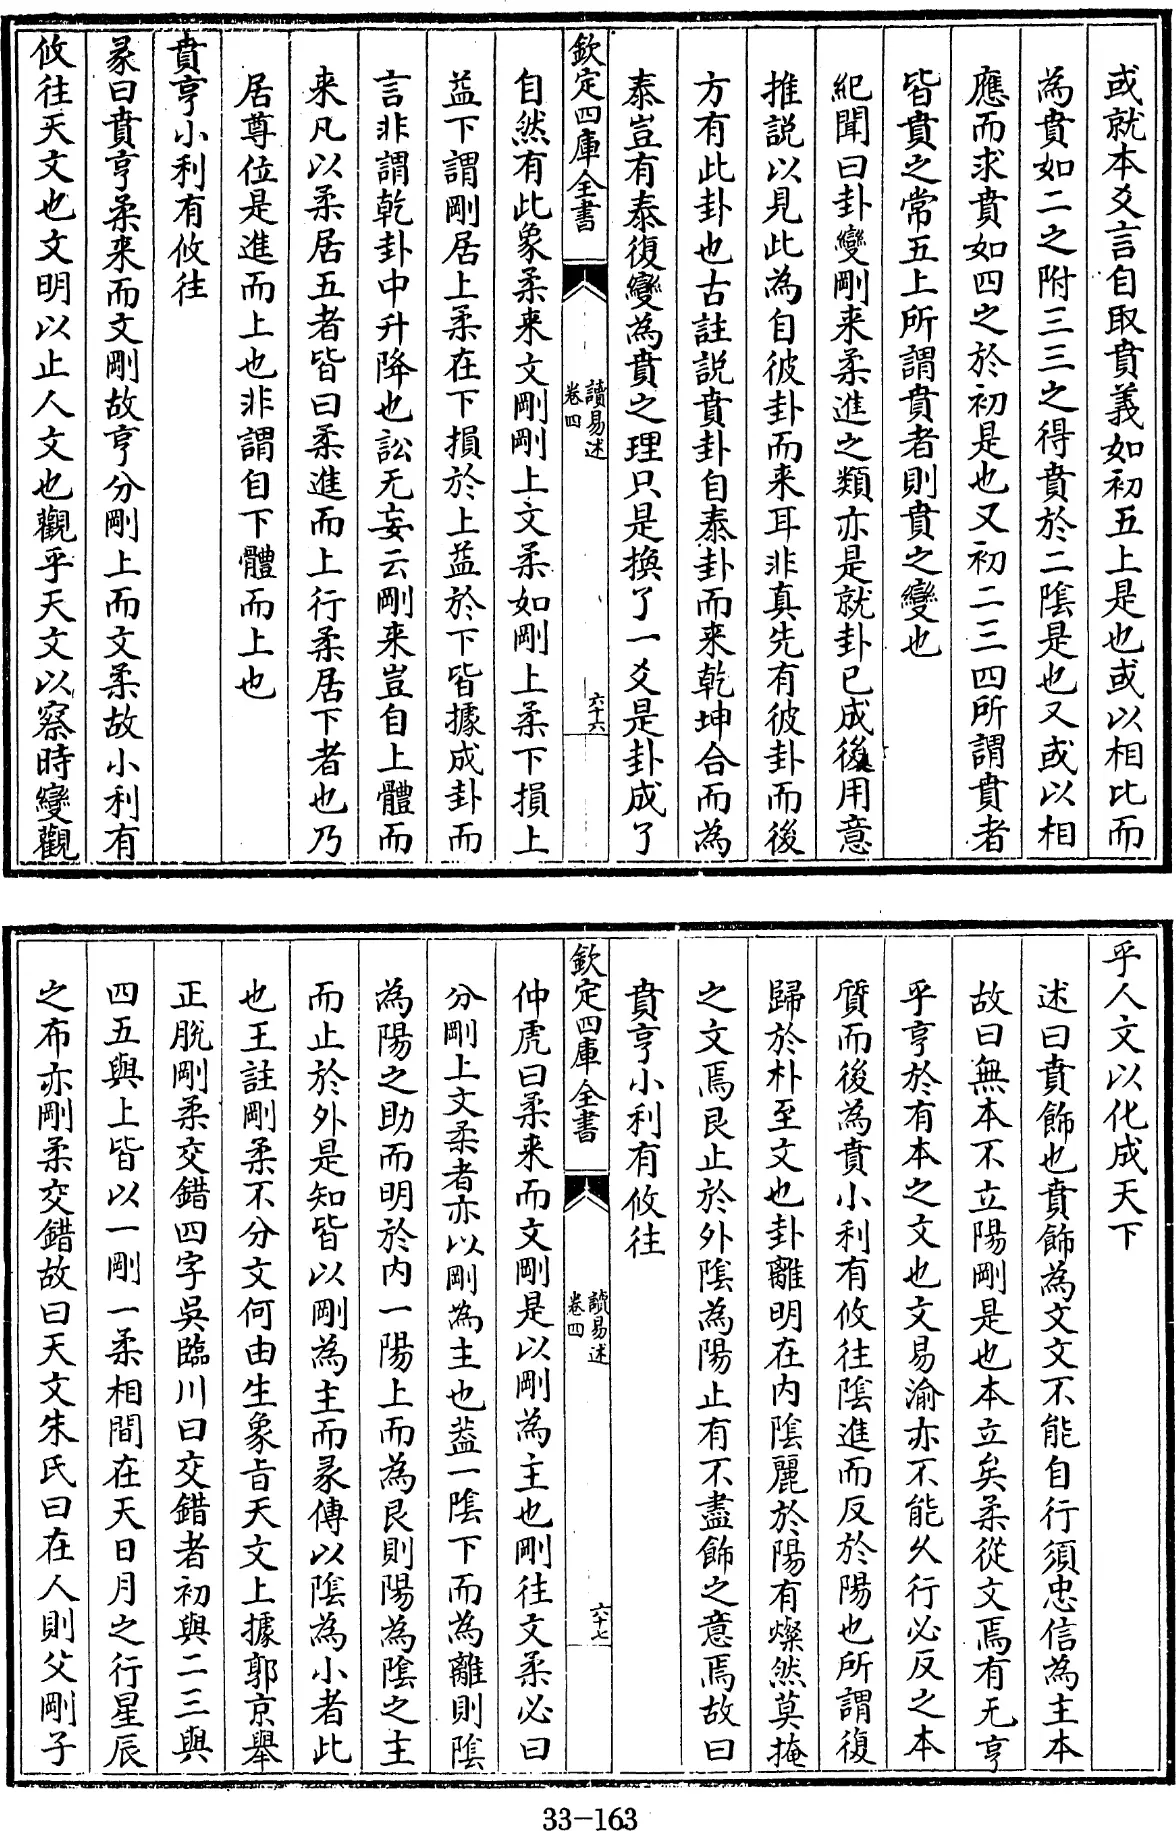 或就本爻言自取賁義如初五上是也或以相比而
為賁如二之附三三之得賁於二陰是也又或以相
應而求賁如四之於初是也又初二三四所謂賁者
皆賁之常五上所謂賁者則賁之變也
紀聞曰卦變剛来柔進之類亦是就卦已成後用意
推説以見此為自彼卦而来耳非真先有彼卦而後
方有此卦也古註説賁卦自泰卦而来乾坤合而為
泰豈有泰復變為賁之理只是換了一爻是卦成了
欽定四庫全書
讀易述
卷四
六十六
自然有此象柔来文剛剛上文柔如剛上柔下損上
益下謂剛居上柔在下損於上益於下皆據成卦而
言非謂乾卦中升降也訟无妄云剛来豈自上體而
来凡以柔居五者皆曰柔進而上行柔居下者也乃
居尊位是進而上也非謂自下體而上也
賁亨小利有攸往
彖曰賁亨柔来而文剛故亨分剛上而文柔故小利有
攸往天文也文明以止人文也觀乎天文以察時變觀
乎人文以化成天下
述曰賁飾也賁飾為文文不能自行須忠信為主本
故曰無本不立陽剛是也本立矣柔從文焉有无亨
乎亨於有本之文也文易渝亦不能久行必反之本
質而後為賁小利有攸往陰進而反於陽也所謂復
歸於朴至文也卦離明在内陰麗於陽有燦然莫掩
之文焉艮止於外陰為陽止有不盡飾之意焉故曰
賁亨小利有攸往
欽定四庫全書
讀易述
卷四
六十七
仲虎曰柔来而文剛是以剛為主也剛往文柔必曰
分剛上文柔者亦以剛為主也葢一陰下而為離則陰
為陽之助而明於内一陽上而為艮則陽為陰之主
而止於外是知皆以剛為主而彖傳以陰為小者此
也王註剛柔不分文何由生象旨天文上據郭京舉
正脱剛柔交錯四字吳臨川曰交錯者初與二三與
四五與上皆以一剛一柔相間在天日月之行星辰
之布亦剛柔交錯故曰天文朱氏曰在人則父剛子
33-163